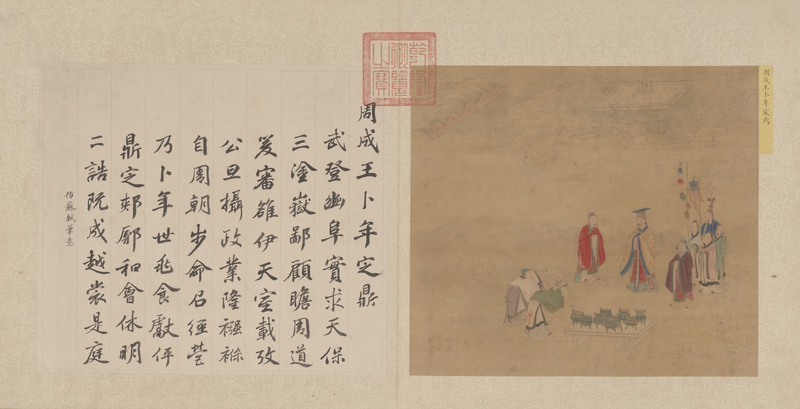 周成王卜年定鼎
乾隆御覽之寶
周成王卜年定鼎
武登豳阜實求天保
三塗嶽鄙顧瞻周道
爰審雒伊天室載攷
公旦攝政業隆襁褓
自周朝步命召經營
乃卜年世兆食獻伻
鼎定郟鄏和會休明
二誥既成越裳是庭
仿蘇軾筆意